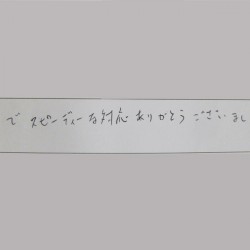 で スピーディーな対応ありがとうございまし